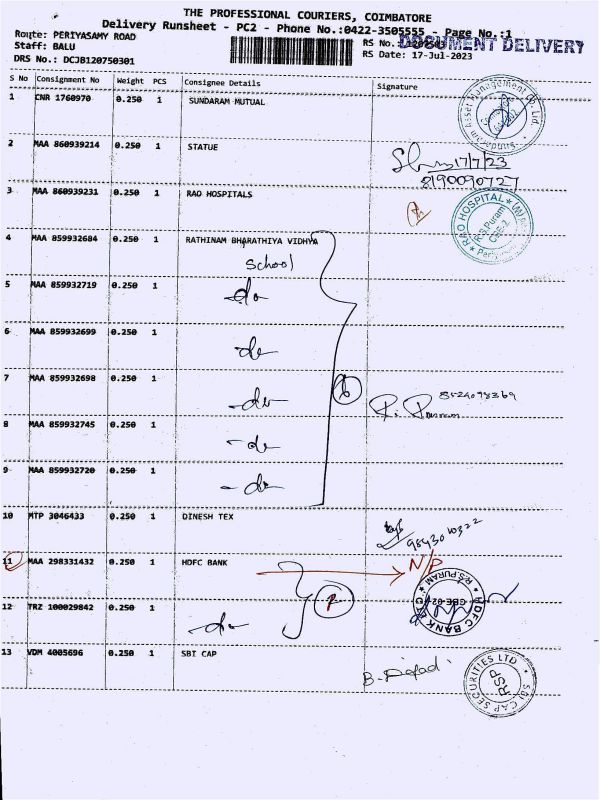 THE PROFESSIONAL COURIERS, COIMBATORE
Delivery Runsheet - PC2 - Phone No.:0422-3505555 - Page No.:1
Route: PERIYASAMY ROAD
Staff: BALU
DRS No.: DCJB120750301
RS No.:
DOCUMENT DELIVERY
RS Date: 17-Jul-2023
S No Consignment No Weight PCS Consignee Details Signature
1 CNR 1760970 0.250 1 SUNDARAM MUTUAL
2 MAA 860939214 0.250 1 STATUE
17/7/23
8190090727
3 MAA 860939231 0.250 1 RAO HOSPITALS
RAO HOSPITAL
R.S.Puram
CBE-2
4 MAA 859932684 0.250 1 RATHINAM BHARATHIYA VIDHYA
School
5 MAA 859932719 0.250 1 do
6 MAA 859932699 0.250 1 do
7 MAA 859932698 0.250 1 do
8 MAA 859932745 0.250 1 do
9 MAA 859932720 0.250 1 do
10 MTP 3046433 0.250 1 DINESH TEX
11 MAA 298331432 0.250 1 HDFC BANK
N/P
HDFC BANK
R.S.PURAM
12 TRZ 100029842 0.250 1 do
13 VDM 4005696 0.250 1 SBI CAP
SBI CAP SECURITIES LTD
RSP